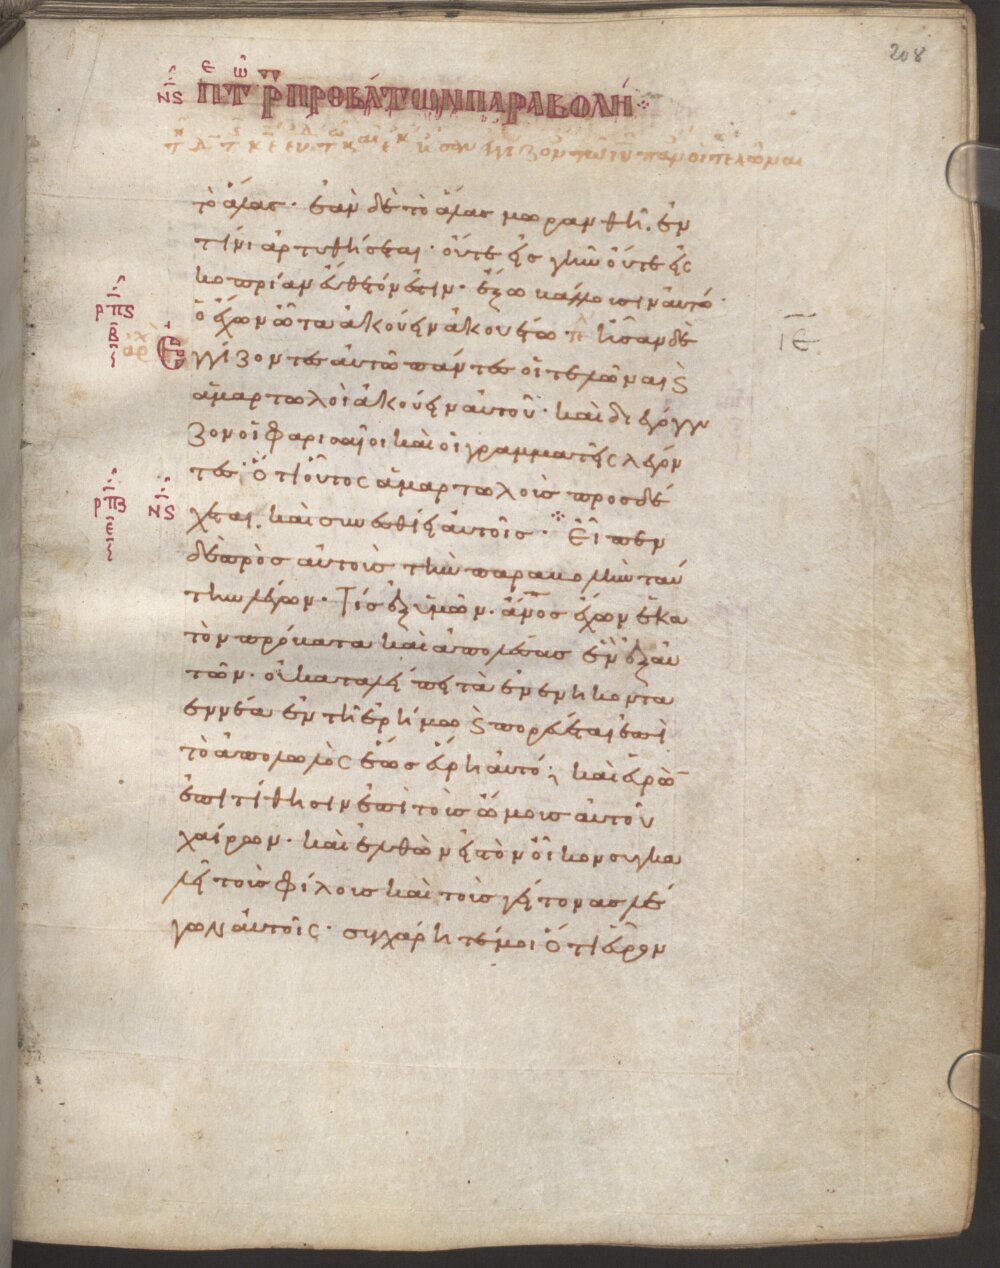 208
ΝϚ ΠΕΡΙ ΤΩΝ Ρ ΠΡΟΒΑΤΩΝ ΠΑΡΑΒΟΛΗ
τὸ ἅλας· ἐὰν δὲ τὸ ἅλας μωρανθῆ, ἐν
τίνι ἀρτυθήσεται· οὔτε εἰς γῆν οὔτε εἰς
κοπρίαν εὔθετόν ἐστιν· ἔξω βάλλουσιν αὐτό·
ὁ ἔχων ὦτα ἀκούειν ἀκουέτω ἦσαν δὲ
ἐγγίζοντες αὐτῶ πάντες οἱ τελῶναι ϗ
ἁμαρτωλοὶ ἀκούειν αὐτοῦ· καὶ διεγόγγυ
ζον οἱ φαρισαῖοι καὶ οἱ γραμματεῖς λέγον
τες· Ὅτι οὗτος ἁμαρτωλοὺς προσδέ
χεται. καὶ συνεσθίει αὐτοῖς· Εἶπεν
δὲ πρὸς αὐτοὺς τὴν παραβολὴν ταύ
την λέγων· Τίς ἐξ ὑμῶν ἄνος ἔχων ἑκα
τὸν πρόβατα καὶ ἀπολέσας ἓν ἐξ αὐ
τῶν· οὐ καταλείπει τὰ ἐνενήκοντα
εννέα ἐν τῆ ἐρήμω ϗ πορεύεται ἐπὶ
τὸ ἀπολωλὸς ἕως εὕρη αὐτό; καὶ εὑρὼν
ἐπιτίθησιν ἐπὶ τοὺς ὤμους αὐτοῦ
χαίρων· καὶ ἐλθὼν εἰς τὸν οἶκον συγκα
λεῖ τοὺς φίλους καὶ τοὺς γείτονας λέ
γων αὐτοῖς· συγχάρητέ μοι ὅτι εὗρον
ρπς
β
ρπζ
ε
νς
ΙΕ